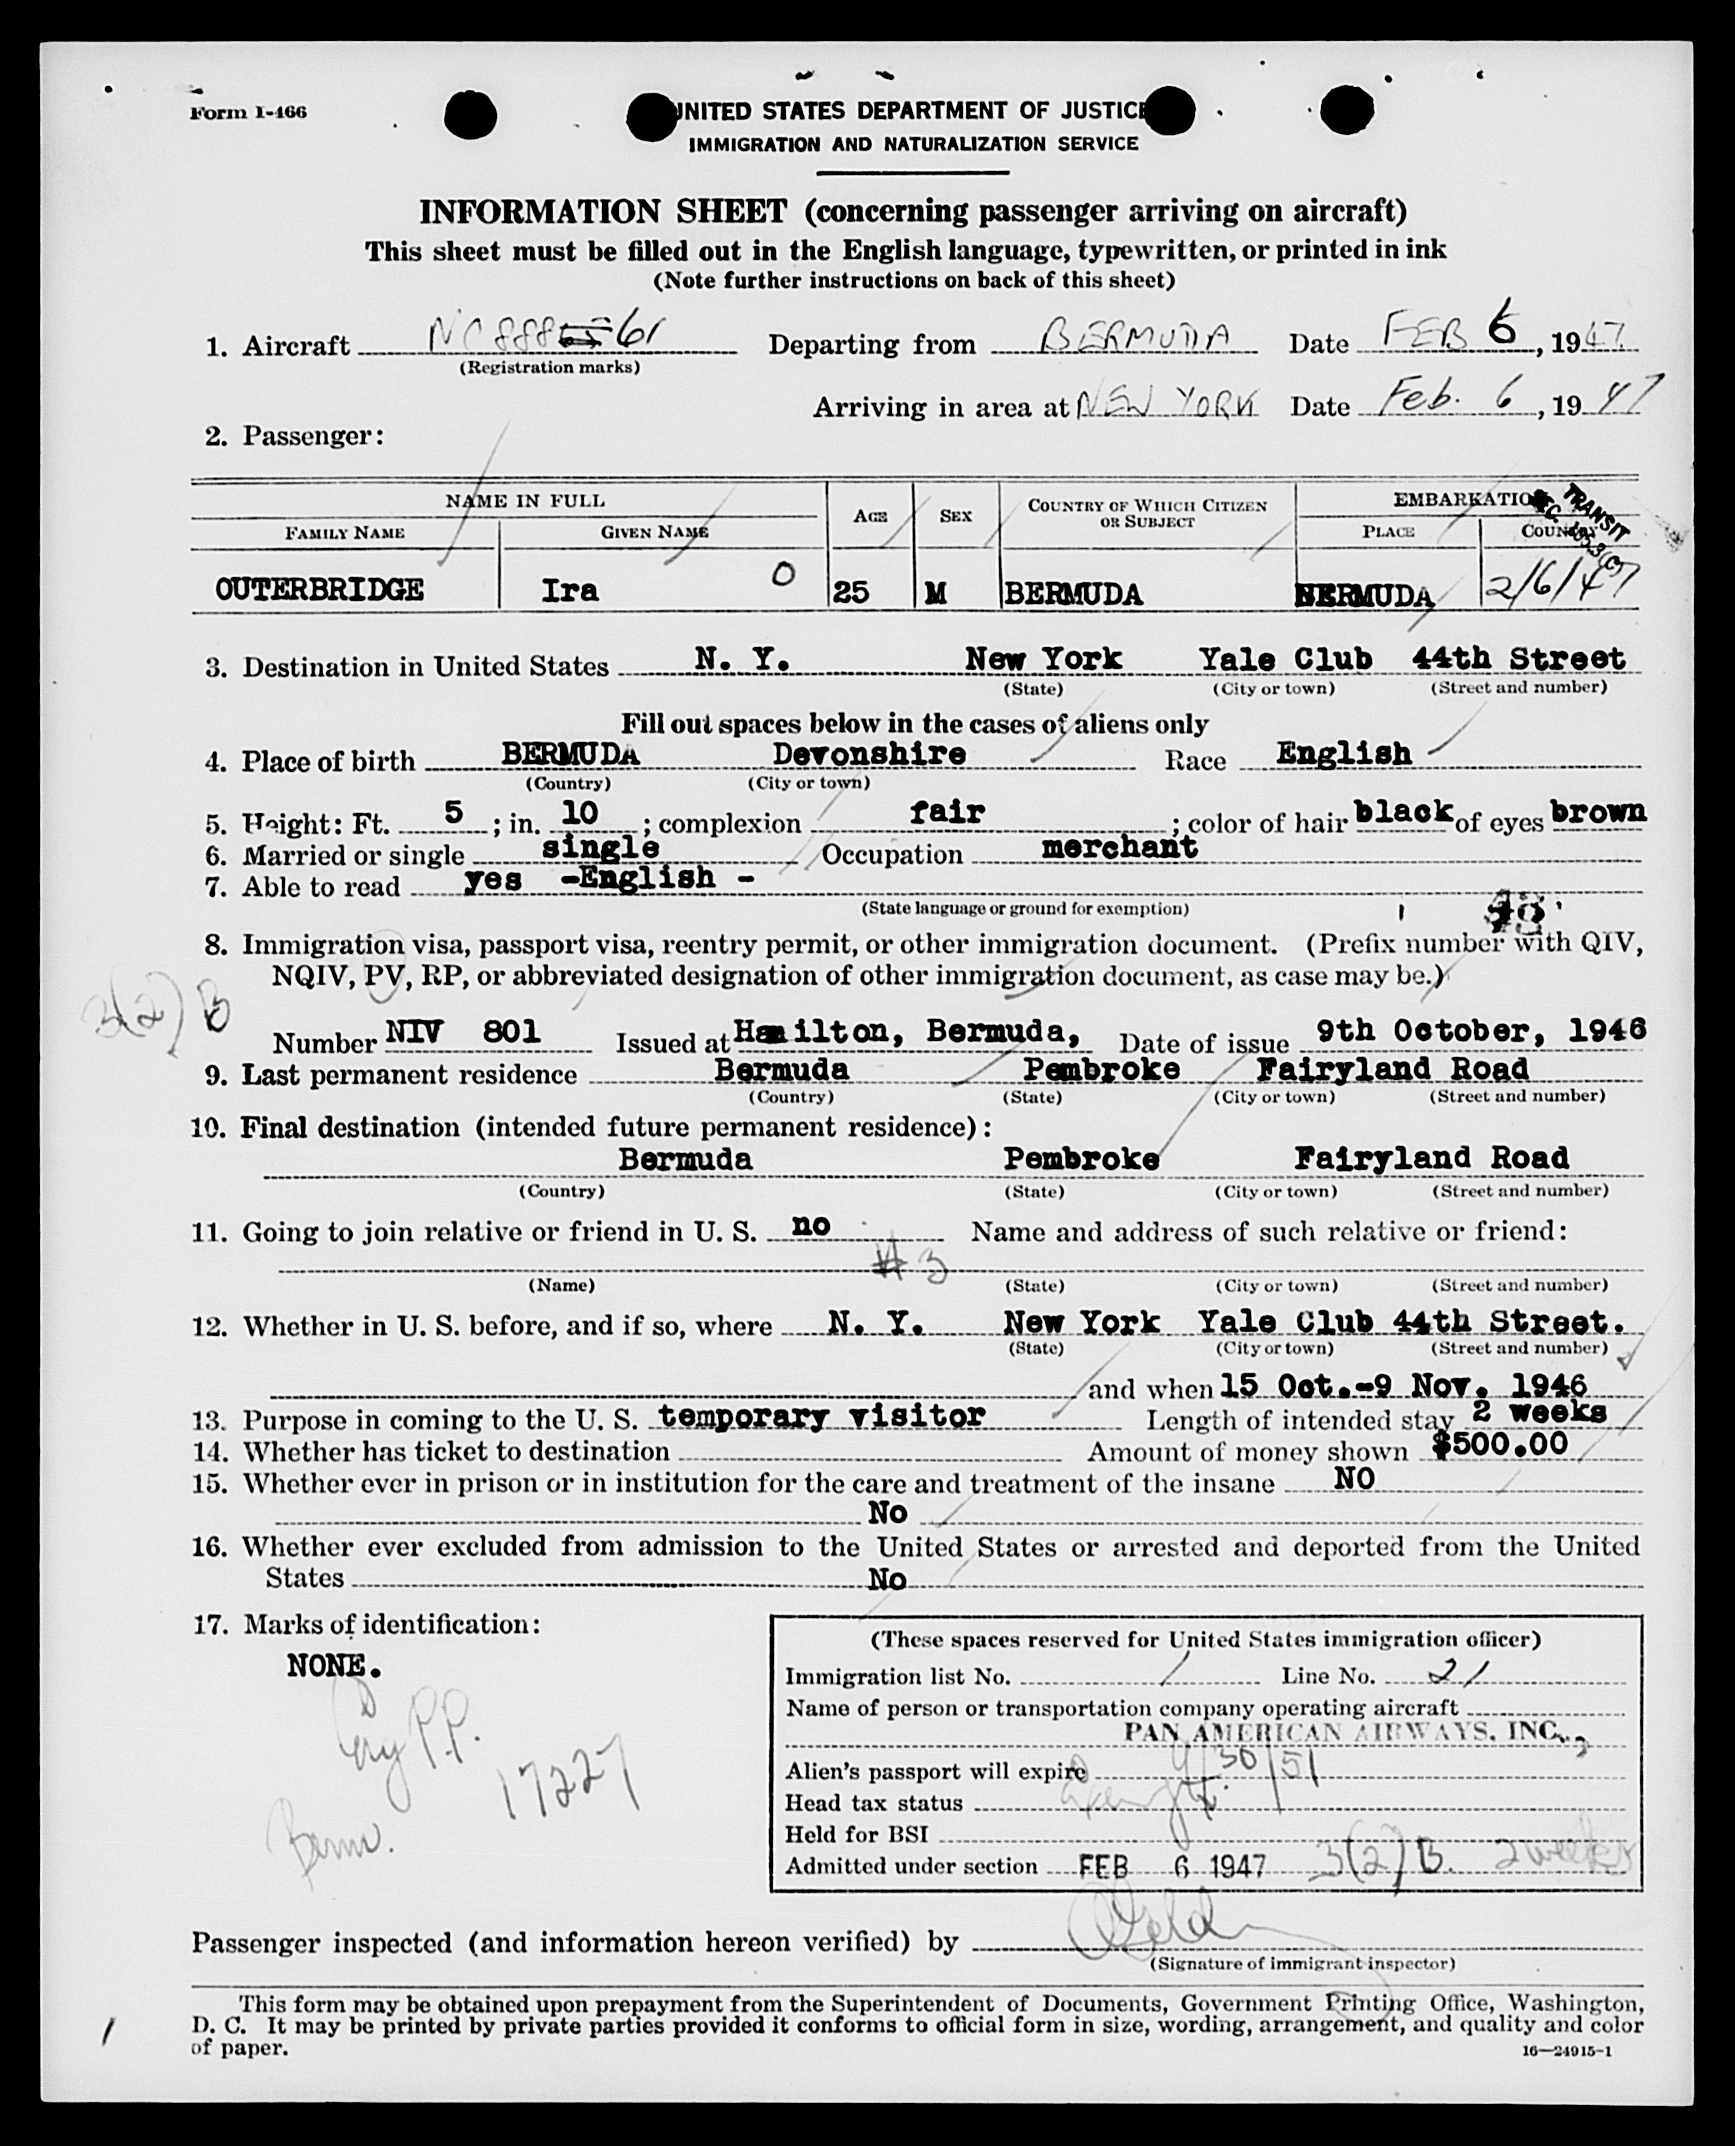 Form I-466
UNITED STATES DEPARTMENT OF JUSTICE
IMMIGRATION AND NATURALIZATION SERVICE
INFORMATION SHEET (concerning passenger arriving on aircraft)
This sheet must be filled out in the English language, typewritten, or printed in ink
(Note further instructions on back of this sheet)
1. Aircraft NC 888 61 Departing from BERMUDA Date FEB 6, 1947
(Registration marks)
Arriving in area at NEW YORK Date Feb. 6, 1947
2. Passenger:
NAME IN FULL AGE SEX COUNTRY OF WHICH CITIZEN OR SUBJECT EMBARKATION
FAMILY NAME GIVEN NAME PLACE COUNTRY
TRANSIT
OUTERBRIDGE Ira O 25 M BERMUDA BERMUDA 2/6/47
3. Destination in United States N. Y. New York Yale Club 44th Street
(State) (City or town) (Street and number)
Fill out spaces below in the cases of aliens only
4. Place of birth BERMUDA Devonshire Race English
(Country) (City or town)
5. Height: Ft. 5; in. 10; complexion fair; color of hair black of eyes brown
6. Married or single single Occupation merchant
7. Able to read yes -English -
(State language or ground for exemption)
8. Immigration visa, passport visa, reentry permit, or other immigration document. (Prefix number with QIV,
NQIV, PV, RP, or abbreviated designation of other immigration document, as case may be.)
3(2) B
Number NIV 801 Issued at Hamilton, Bermuda, Date of issue 9th October, 1946
9. Last permanent residence Bermuda Pembroke Fairyland Road
(Country) (State) (City or town) (Street and number)
10. Final destination (intended future permanent residence):
Bermuda Pembroke Fairyland Road
(Country) (State) (City or town) (Street and number)
11. Going to join relative or friend in U. S. no Name and address of such relative or friend:
# 3
(Name) (State) (City or town) (Street and number)
12. Whether in U. S. before, and if so, where N. Y. New York Yale Club 44th Street.
(State) (City or town) (Street and number)
and when 15 Oct.-9 Nov. 1946
13. Purpose in coming to the U. S. temporary visitor Length of intended stay 2 weeks
14. Whether has ticket to destination Amount of money shown $500.00
15. Whether ever in prison or in institution for the care and treatment of the insane NO
No
16. Whether ever excluded from admission to the United States or arrested and deported from the United
States No
17. Marks of identification:
NONE.
P.P.
17227
Berm.
(These spaces reserved for United States immigration officer)
Immigration list No. 1 Line No. 21
Name of person or transportation company operating aircraft
PAN AMERICAN AIRWAYS, INC.
Alien's passport will expire 9/30/51
Head tax status
Held for BSI
Admitted under section FEB 6 1947 3(2) B. 2 weeks
Passenger inspected (and information hereon verified) by
(Signature of immigrant inspector)
This form may be obtained upon prepayment from the Superintendent of Documents, Government Printing Office, Washington,
D. C. It may be printed by private parties provided it conforms to official form in size, wording, arrangement, and quality and color
of paper.
16—24915-1